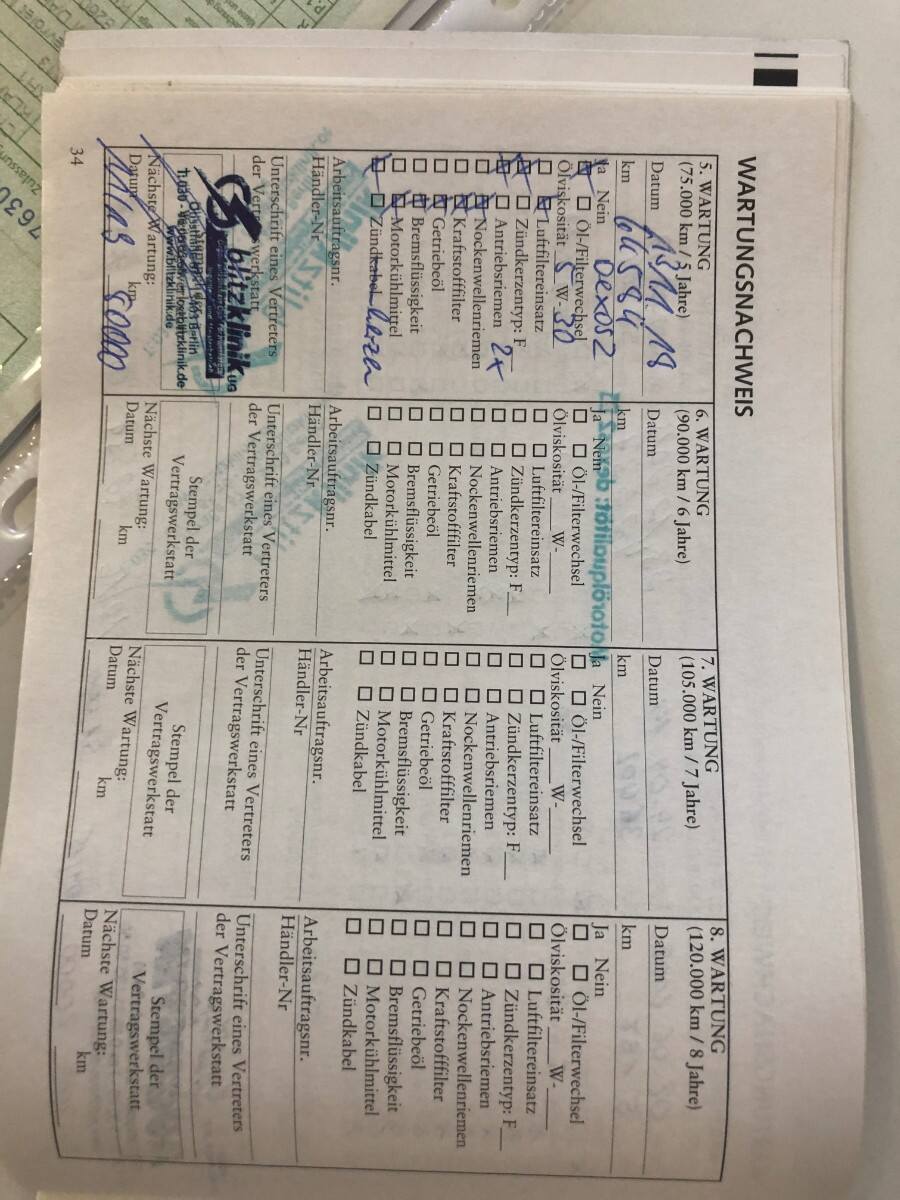 WARTUNGSNACHWEIS
5. WARTUNG
(75.000 km / 5 Jahre)
Datum 11.18
km 61584
Ja Nein Dexos2
Öl-/Filterwechsel
Ölviskosität 5 W- 30
Luftfiltereinsatz
Zündkerzentyp: F
Antriebsriemen 2x
Nockenwellenriemen
Kraftstofffilter
Getriebeöl
Bremsflüssigkeit
Motorkühlmittel
Zündkabel kerzen
Arbeitsauftragsnr.
Händler-Nr
Unterschrift eines Vertreters
der Vertragswerkstatt
blitzklinik UG
www.blitzklinik.de
Nächste Wartung:
Datum km
6. WARTUNG
(90.000 km / 6 Jahre)
Datum
km
Ja Nein
Öl-/Filterwechsel
Ölviskosität W-
Luftfiltereinsatz
Zündkerzentyp: F
Antriebsriemen
Nockenwellenriemen
Kraftstofffilter
Getriebeöl
Bremsflüssigkeit
Motorkühlmittel
Zündkabel
Arbeitsauftragsnr.
Händler-Nr
Unterschrift eines Vertreters
der Vertragswerkstatt
Stempel der
Vertragswerkstatt
Nächste Wartung:
Datum km
7. WARTUNG
(105.000 km / 7 Jahre)
Datum
km
Ja Nein
Öl-/Filterwechsel
Ölviskosität W-
Luftfiltereinsatz
Zündkerzentyp: F
Antriebsriemen
Nockenwellenriemen
Kraftstofffilter
Getriebeöl
Bremsflüssigkeit
Motorkühlmittel
Zündkabel
Arbeitsauftragsnr.
Händler-Nr
Unterschrift eines Vertreters
der Vertragswerkstatt
Stempel der
Vertragswerkstatt
Nächste Wartung:
Datum km
8. WARTUNG
(120.000 km / 8 Jahre)
Datum
km
Ja Nein
Öl-/Filterwechsel
Ölviskosität W-
Luftfiltereinsatz
Zündkerzentyp: F
Antriebsriemen
Nockenwellenriemen
Kraftstofffilter
Getriebeöl
Bremsflüssigkeit
Motorkühlmittel
Zündkabel
Arbeitsauftragsnr.
Händler-Nr
Unterschrift eines Vertreters
der Vertragswerkstatt
Stempel der
Vertragswerkstatt
Nächste Wartung:
Datum km
34